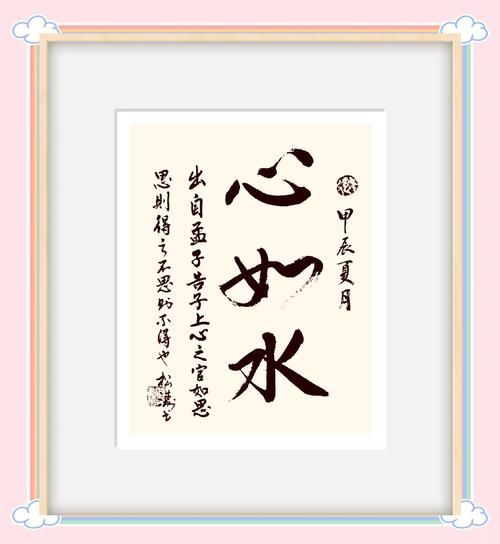 甲辰夏月
心如水
出自孟子告子上心之官如思
思則得之不思则不得也松书